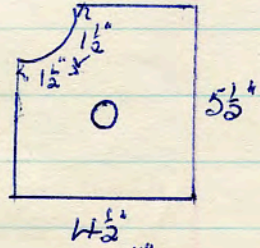 1½"
1½"
5½"
4½"